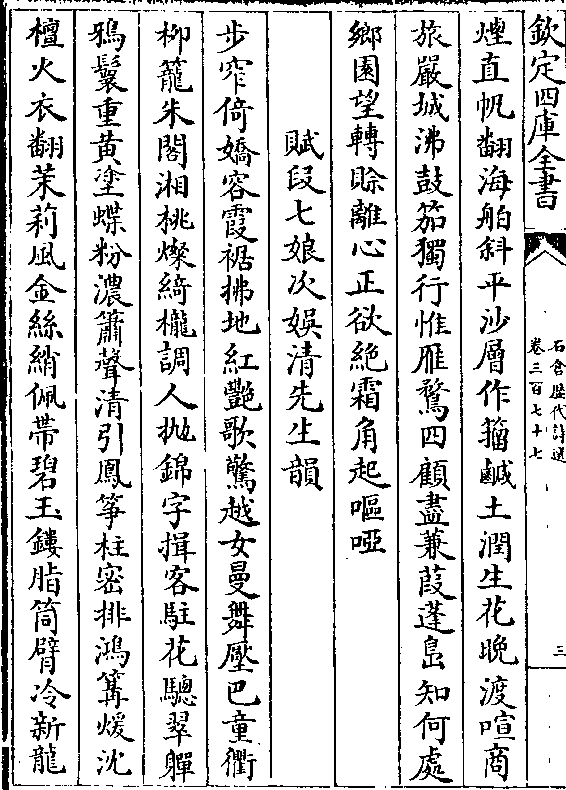 欽定四庫全書
石倉歷代詩選
卷三百七十七
三
煙直帆翻海舶斜平沙層作籀鹹土潤生花晚渡喧商
旅嚴城沸鼓笳獨行惟雁鶩四顧盡蒹葭蓬島知何處
鄉園望轉賒離心正欲絕霜角起嘔啞
賦段七娘次娛清先生韻
步窄倚嬌容霞裾拂地紅艷歌驚越女曼舞壓巴童衢
柳籠朱閣湘桃燦綺櫳調人拋錦字揖客駐花驄翠嚲
鴉鬟重黃塗蝶粉濃簫聲清引鳳箏柱密排鴻篝煖沈
檀火衣翻茉莉風金絲綃佩帶碧玉鏤脂筒臂冷新龍